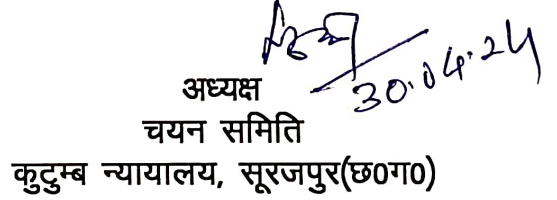 30.04.24
अध्यक्ष
चयन समिति
कुटुम्ब न्यायालय, सूरजपुर(छ0ग0)